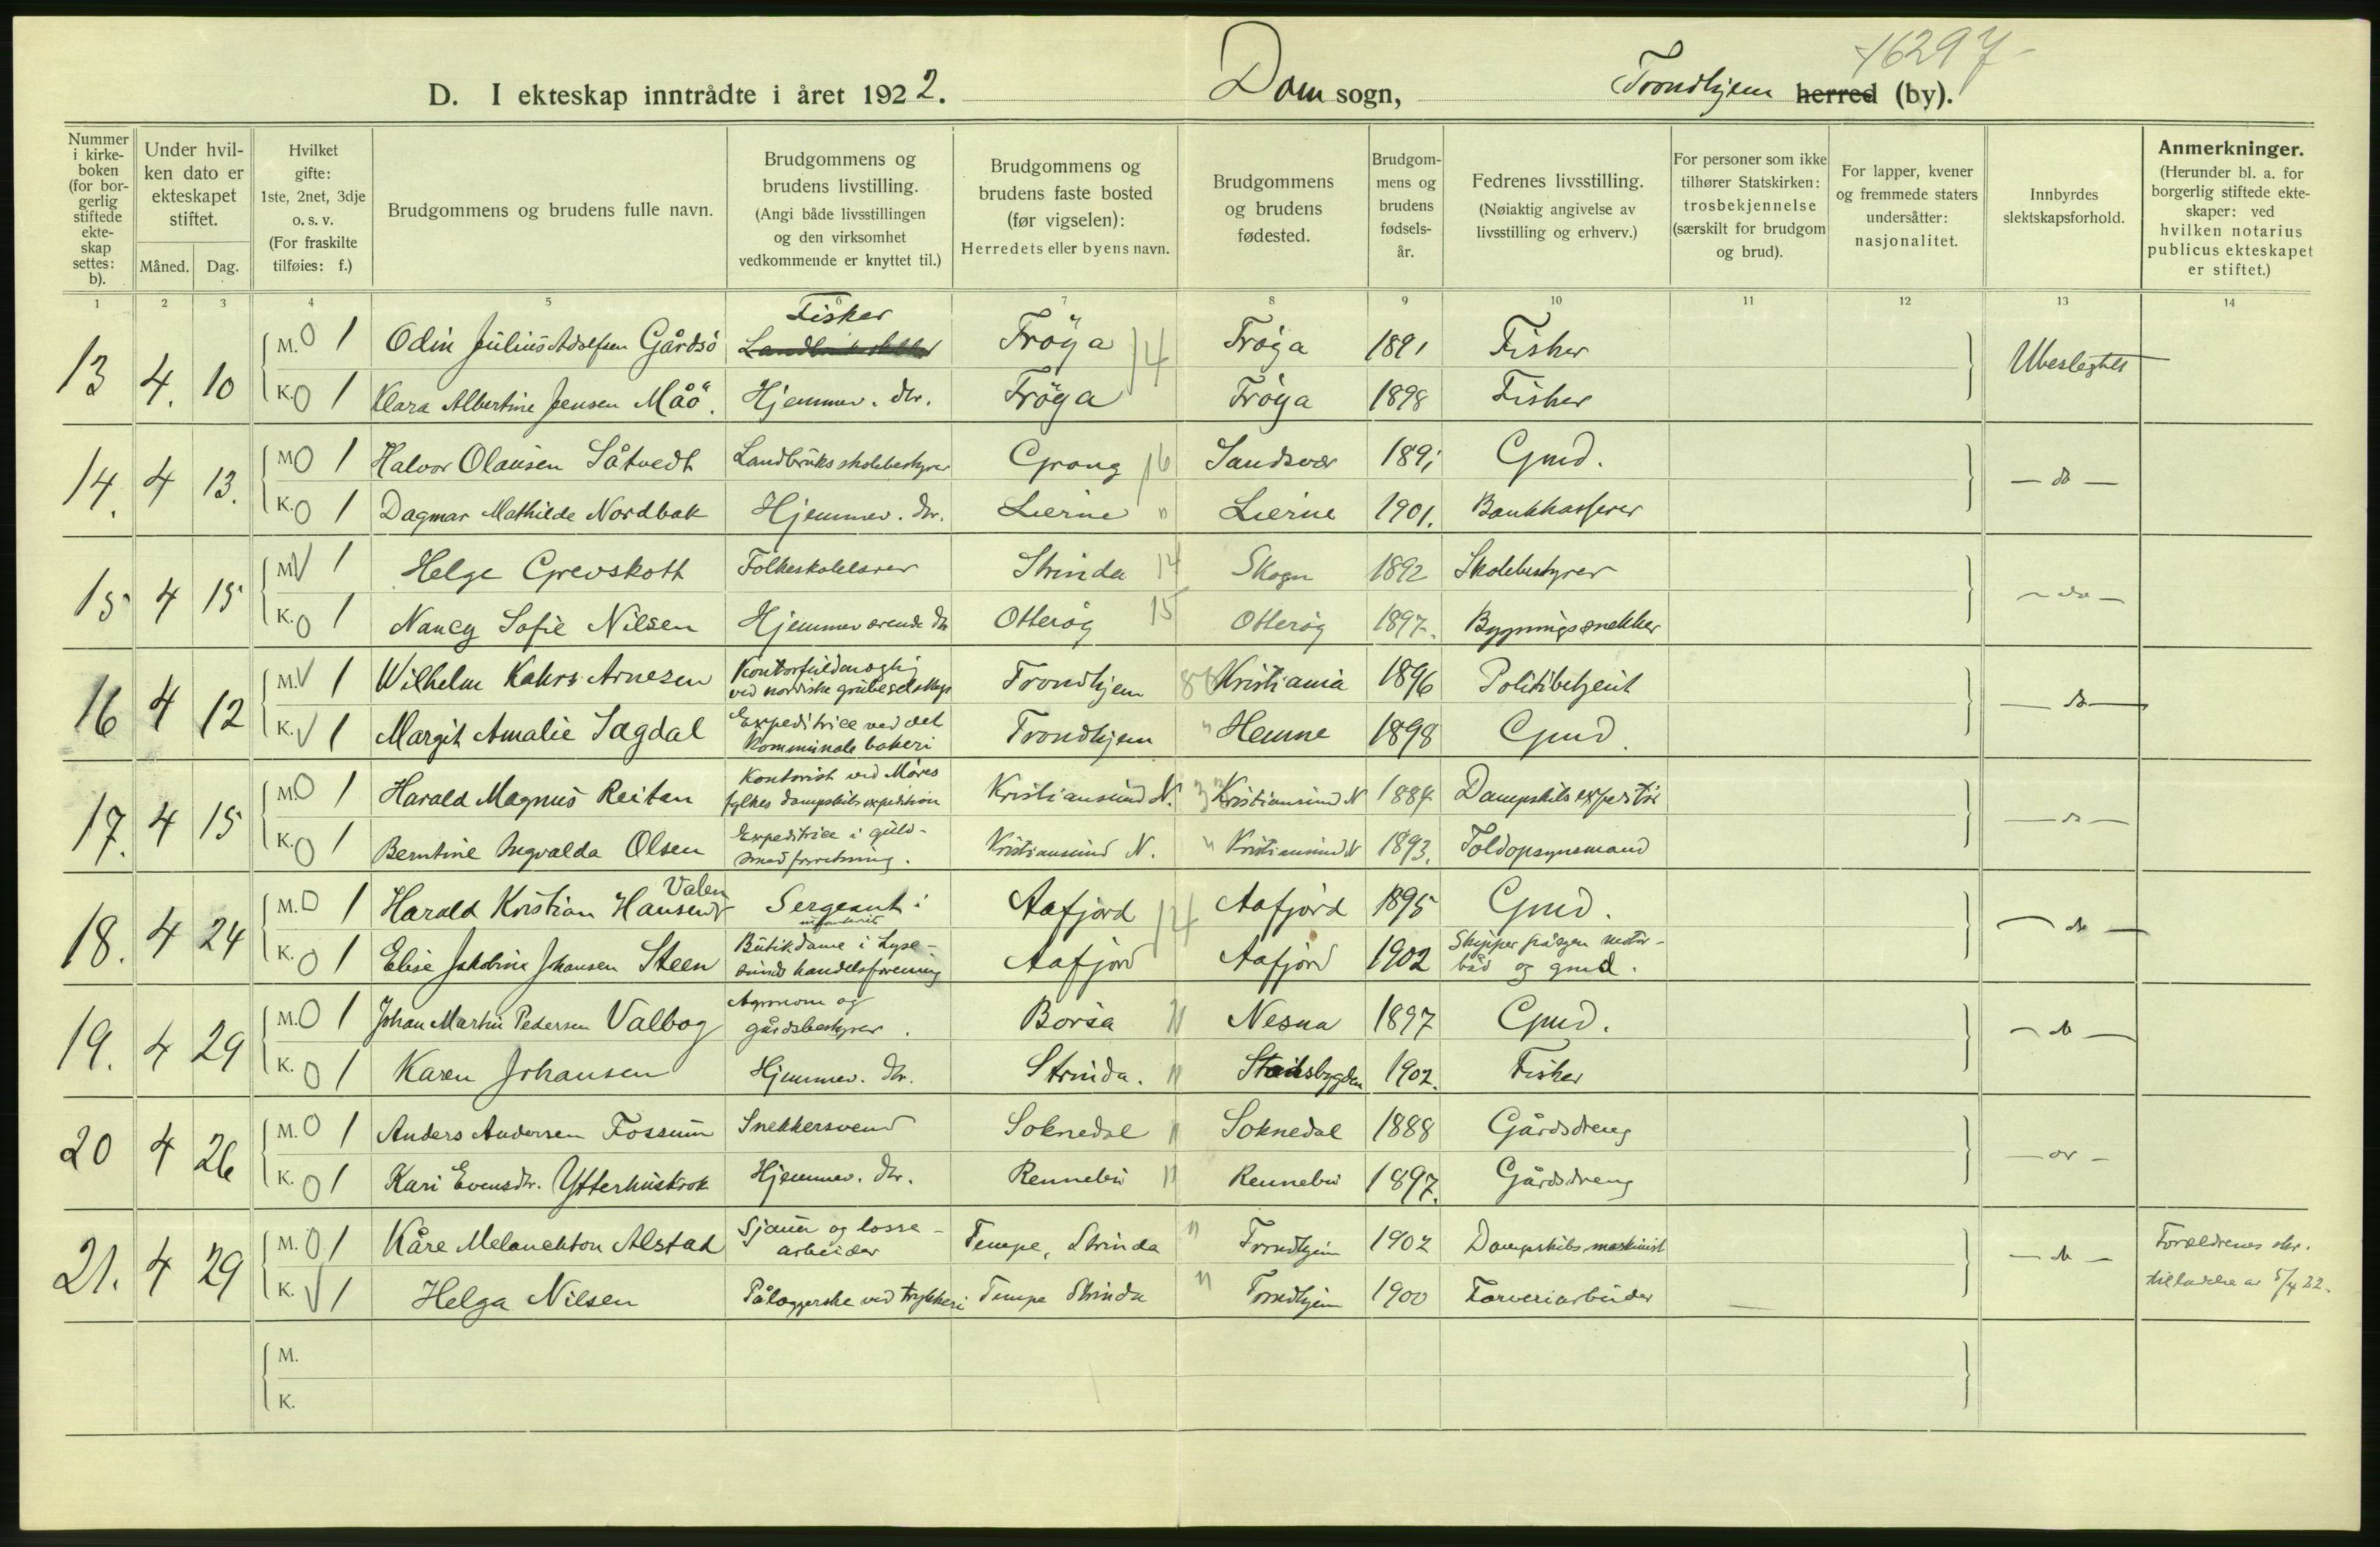 46297
D. I ekteskap inntrådte i året 1922. Dom sogn, Trondhjem herred (by).
Nummer i kirke-boken (for bor-gerlig stiftede ekte-skap settes: b).
Under hvil-ken dato er ekteskapet stiftet.
Måned. Dag.
Hvilket gifte: 1ste, 2net, 3dje o. s. v. (For fraskilte tilføies: f.)
Brudgommens og brudens fulle navn.
Brudgommens og brudens livstilling. (Angi både livsstillingen og den virksomhet vedkommende er knyttet til.)
Brudgommens og brudens faste bosted (før vigselen): Herredets eller byens navn.
Brudgommens og brudens fødested.
Brudgom-mens og brudens fødsels-år.
Fedrenes livsstilling. (Nøiaktig angivelse av livsstilling og erhverv.)
For personer som ikke tilhører Statskirken: trosbekjennelse (særskilt for brudgom og brud).
For lapper, kvener og fremmede staters undersåtter: nasjonalitet.
Innbyrdes slektskapsforhold.
Anmerkninger. (Herunder bl. a. for borgerlig stiftede ekte-skaper: ved hvilken notarius publicus ekteskapet er stiftet.)
1 2 3 4 5 6 7 8 9 10 11 12 13 14
Fisker
13 4. 10 M. O 1 Odin Julius Adolfsen Gårdsö Frøya 14 Frøya 1891 Fisker Ubeslegtet
K. O 1 Klara Albertine Jensen Måö. Hjemmev. dtr. Frøya Frøya 1898 Fisker
14. 4 13. M O 1 Halvor Olausen Såtvedt Landbruksskolebestyrer Grong 16 Sandsvær 1891 Gmd. — do —
K. O 1 Dagmar Mathilde Nordbak Hjemmev. dtr. Lierne " Lierne 1901. Bankkasserer
15 4 15 M V 1 Helge Grevskott Folkeskolelærer Strinda 14 Skogn 1892 Skolebestyrer — do —
K. O 1 Nancy Sofie Nilsen Hjemmeværende dtr Otterøy 15 Otterøy 1897. Bygningssnekker
16 4 12 M. V 1 Wilhelm Kahrs Arnesen Kontorfuldmægtig
ved nordiske grubeselskap Trondhjem Kristiania 1896 Politibetjent — do —
K. V 1 Margit Amalie Sagdal Expeditrice ved det
kommunale bakeri Trondhjem " Hemne 1898 Gmd.
17. 4 15 M. O 1 Harald Magnus Reitan Kontorist ved Møres
fylkes dampskibsexpedition Kristiansund N. Kristiansund N 1884 Dampskibsexpeditør — do —
K. O 1 Berntine Ingvalda Olsen Expeditrice i guld-
smedforretning. Kristiansund N. " Kristiansund N 1893. Toldopsynsmand
18. 4 24 M. O 1 Harald Kristian Hansen Valen Sergeant i
infanteriet Aafjord 14 Aafjord 1895 Gmd. — do —
K. O 1 Elise Jakobine Johansen Steen Butikdame i Lyse-
sunds handelsforening Aafjord Aafjord 1902 Skipper på egen motor-
båd og gmd.
19. 4 29 M. O 1 Johan Martin Pedersen Valbog Agronom og
gårdsbestyrer. Børsa Nesna 1897 Gmd. — do —
K. O 1 Karen Johansen Hjemmev. dtr. Strinda. " Stadsbygden 1902. Fisker
20 4 26 M. O 1 Anders Andersen Fossum Snekkersvend Soknedal " Soknedal 1888 Gårdsdreng — do —
K. O 1 Kari Evensdtr. Ytterhuskrok Hjemmev. dtr. Rennebu " Rennebu 1897. Gårdsdreng
21. 4 29 M. O 1 Kåre Melanchton Alstad Sjauer og losse-
arbeider Tempe, Strinda " Trondhjem 1902 Dampskibsmaskinist — do — Forældrenes skr.
tilladelse av 5/4 22.
K. V 1 Helga Nilsen Pålæggerske ved trykkeri Tempe Strinda " Trondhjem 1900 Farveriarbeider —
M.
K.